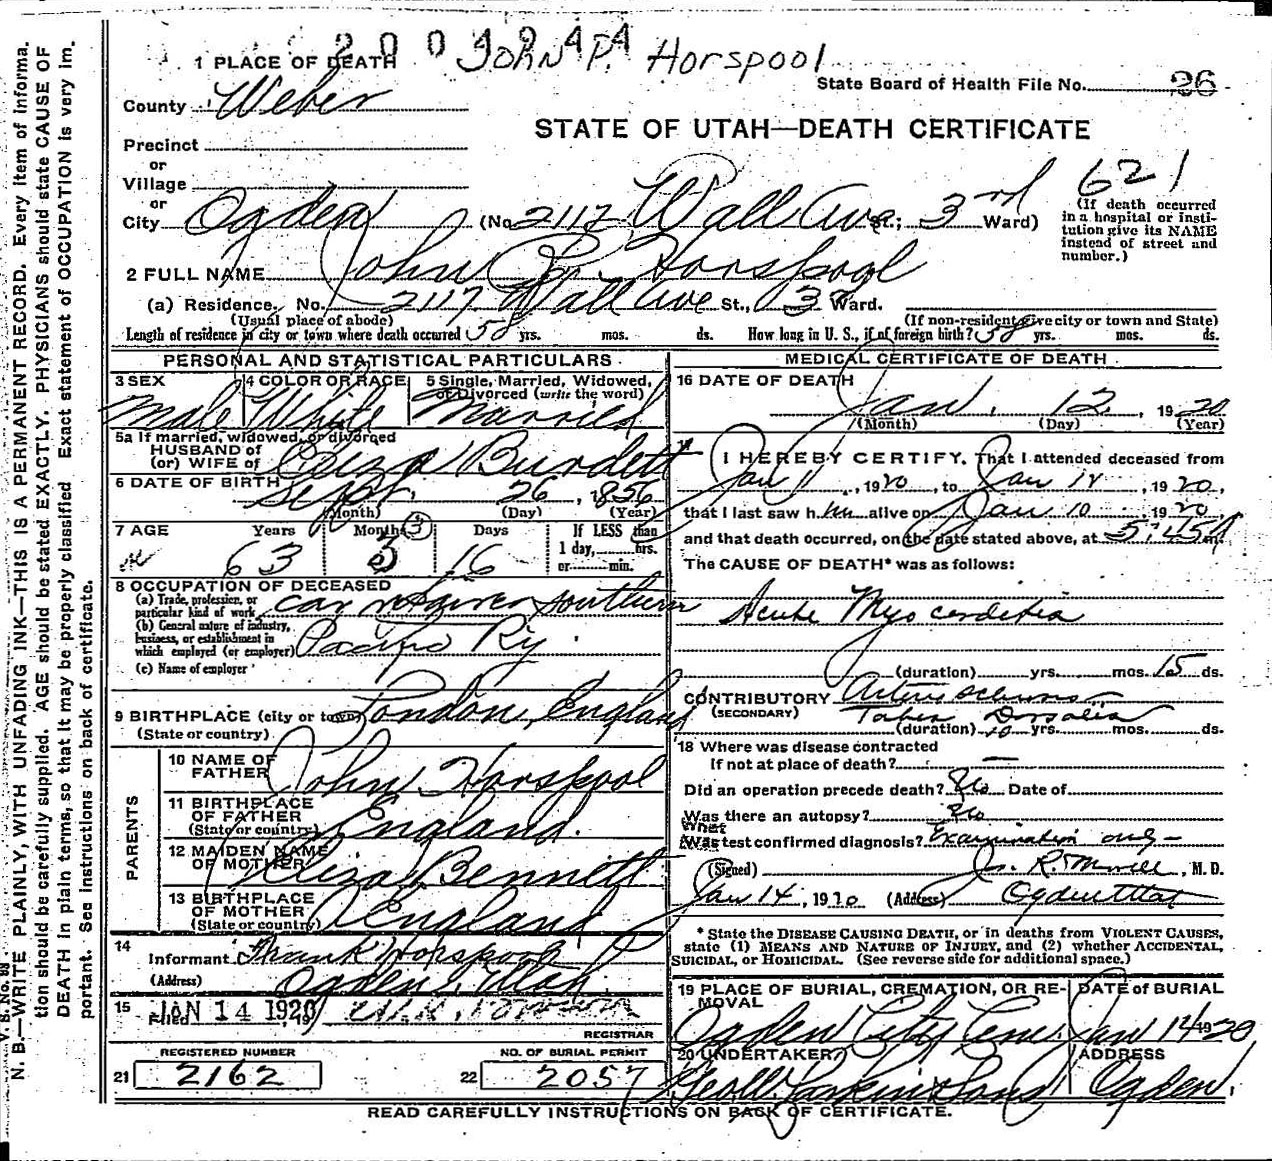 2009494
John P. Horspool
1 PLACE OF DEATH
State Board of Health File No. 26
County Weber
STATE OF UTAH—DEATH CERTIFICATE
Precinct
or
Village
or
City Ogden (No. 2117 Wall Ave St.; 3rd Ward)
621
(If death occurred
in a hospital or insti-
tution give its NAME
instead of street and
number.)
2 FULL NAME John P. Horspool
(a) Residence. No. 2117 Wall Ave St., 3d Ward.
(Usual place of abode) (If non-resident give city or town and State)
Length of residence in city or town where death occurred 58 yrs. mos. ds. How long in U. S., if of foreign birth? 58 yrs. mos. ds.
PERSONAL AND STATISTICAL PARTICULARS
3 SEX Male
4 COLOR OR RACE White
5 Single, Married, Widowed,
or Divorced (write the word)
Married
5a If married, widowed, or divorced
HUSBAND of
(or) WIFE of Eliza Burdett
6 DATE OF BIRTH Sept. 26, 1856
(Month) (Day) (Year)
7 AGE Years Months Days If LESS than
63 3 16 1 day, hrs.
or min.
8 OCCUPATION OF DECEASED
(a) Trade, profession, or
particular kind of work car repairer southern
(b) General nature of industry,
business, or establishment in
which employed (or employer) Pacific Ry.
(c) Name of employer
9 BIRTHPLACE (city or town) London, England
(State or country)
PARENTS
10 NAME OF
FATHER John Horspool
11 BIRTHPLACE
OF FATHER
(State or country) England.
12 MAIDEN NAME
OF MOTHER Eliza Bennett
13 BIRTHPLACE
OF MOTHER
(State or country) England
14
Informant Frank Horspool
(Address) Ogden, Utah.
15 Filed JAN 14 1920, 19
REGISTRAR
REGISTERED NUMBER
21 2162
NO. OF BURIAL PERMIT
22 2057
MEDICAL CERTIFICATE OF DEATH
16 DATE OF DEATH
Jan. 12, 1920
(Month) (Day) (Year)
I HEREBY CERTIFY, That I attended deceased from
Jan 11, 1920, to Jan 12, 1920,
that I last saw him alive on Jan 10 1920,
and that death occurred, on the date stated above, at 5:45A m.
The CAUSE OF DEATH* was as follows:
Acute Myocarditis
(duration) yrs. mos. 15 ds.
CONTRIBUTORY Arteriosclerosis
(SECONDARY) Tabes Dorsalis
(duration) 10 yrs. mos. ds.
18 Where was disease contracted
If not at place of death? —
Did an operation precede death? No Date of
Was there an autopsy? No
What
Was test confirmed diagnosis? Examination only
(Signed) R. Morrell, M. D.
Jan 14, 1920 (Address) Ogden Utah
* State the DISEASE CAUSING DEATH, or in deaths from VIOLENT CAUSES,
state (1) MEANS AND NATURE OF INJURY, and (2) whether ACCIDENTAL,
SUICIDAL, or HOMICIDAL. (See reverse side for additional space.)
19 PLACE OF BURIAL, CREMATION, OR RE-
MOVAL
Ogden City Cem.
DATE of BURIAL
Jan 14 1920
20 UNDERTAKER
Geo W. Larkin & Sons
ADDRESS
Ogden.
READ CAREFULLY INSTRUCTIONS ON BACK OF CERTIFICATE.
V. S. No. 
N. B.—WRITE PLAINLY, WITH UNFADING INK—THIS IS A PERMANENT RECORD. Every item of informa-
tion should be carefully supplied. AGE should be stated EXACTLY. PHYSICIANS should state CAUSE OF
DEATH in plain terms, so that it may be properly classified. Exact statement of OCCUPATION is very im-
portant. See instructions on back of certificate.